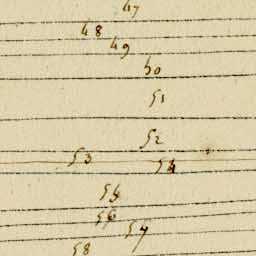 47
48
49
50
51
52
53 54
55
56
57
58